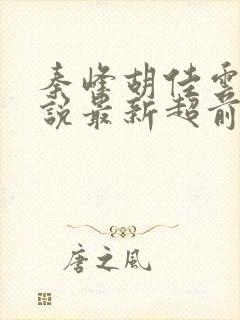 秦峰胡佳雲
說最新超前
唐之風